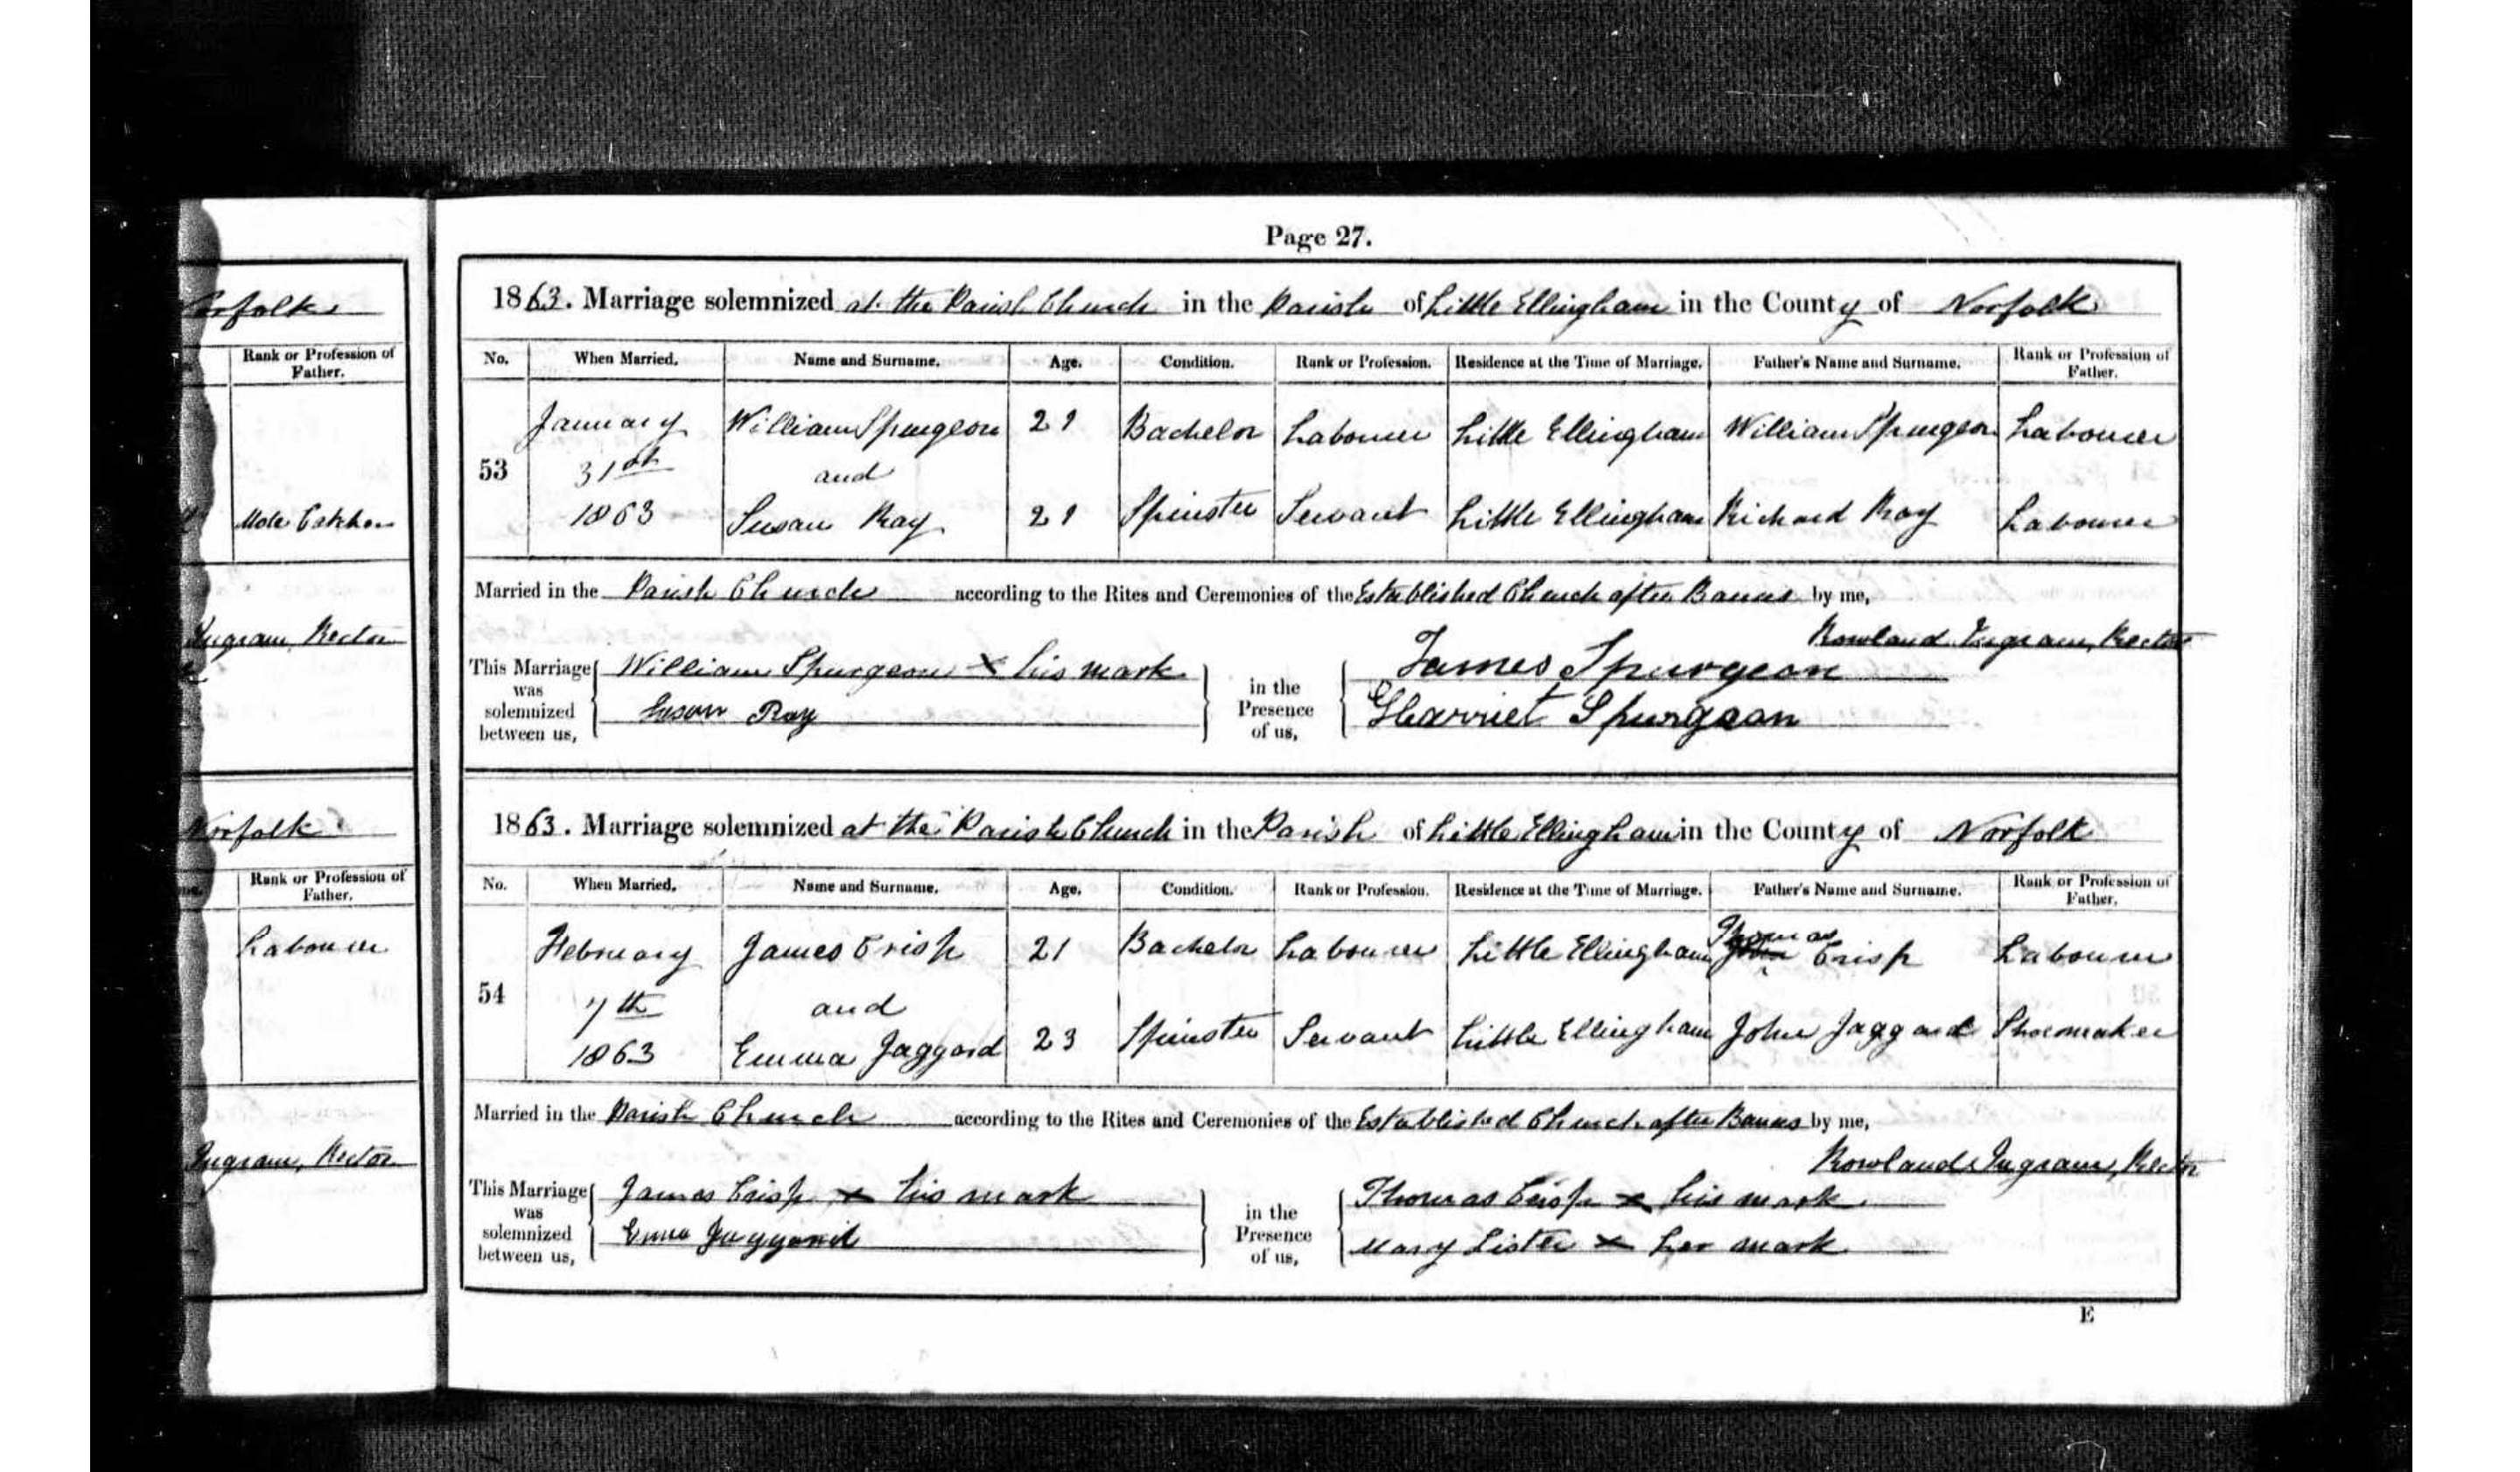 Page 27.
Norfolk
Rank or Profession of Father.
Mole Catcher
Ingram, Rector
Norfolk
Rank or Profession of Father.
Labourer
Ingram, Rector
1863. Marriage solemnized at the Parish Church in the Parish of Little Ellingham in the County of Norfolk
No. When Married. Name and Surname. Age. Condition. Rank or Profession. Residence at the Time of Marriage. Father's Name and Surname. Rank or Profession of Father.
January William Spurgeon 21 Bachelor Labourer Little Ellingham William Spurgeon Labourer
53 31st and
1863 Susan Ray 21 Spinster Servant Little Ellingham Richard Ray Labourer
Married in the Parish Church according to the Rites and Ceremonies of the Established Church after Banns by me,
Rowland Ingram, Rector
This Marriage was solemnized between us, William Spurgeon x his mark in the Presence of us, James Spurgeon
Susan Ray Harriet Spurgeon
1863. Marriage solemnized at the Parish Church in the Parish of Little Ellingham in the County of Norfolk
No. When Married. Name and Surname. Age. Condition. Rank or Profession. Residence at the Time of Marriage. Father's Name and Surname. Rank or Profession of Father.
Thomas
February James Crisp 21 Bachelor Labourer Little Ellingham John Crisp Labourer
54 7th and
1863 Emma Jaggard 23 Spinster Servant Little Ellingham John Jaggard Shoemaker
Married in the Parish Church according to the Rites and Ceremonies of the Established Church after Banns by me,
Rowland Ingram, Rector
This Marriage was solemnized between us, James Crisp x his mark in the Presence of us, Thomas Crisp x his mark
Emma Jaggard Mary Lister x her mark
E